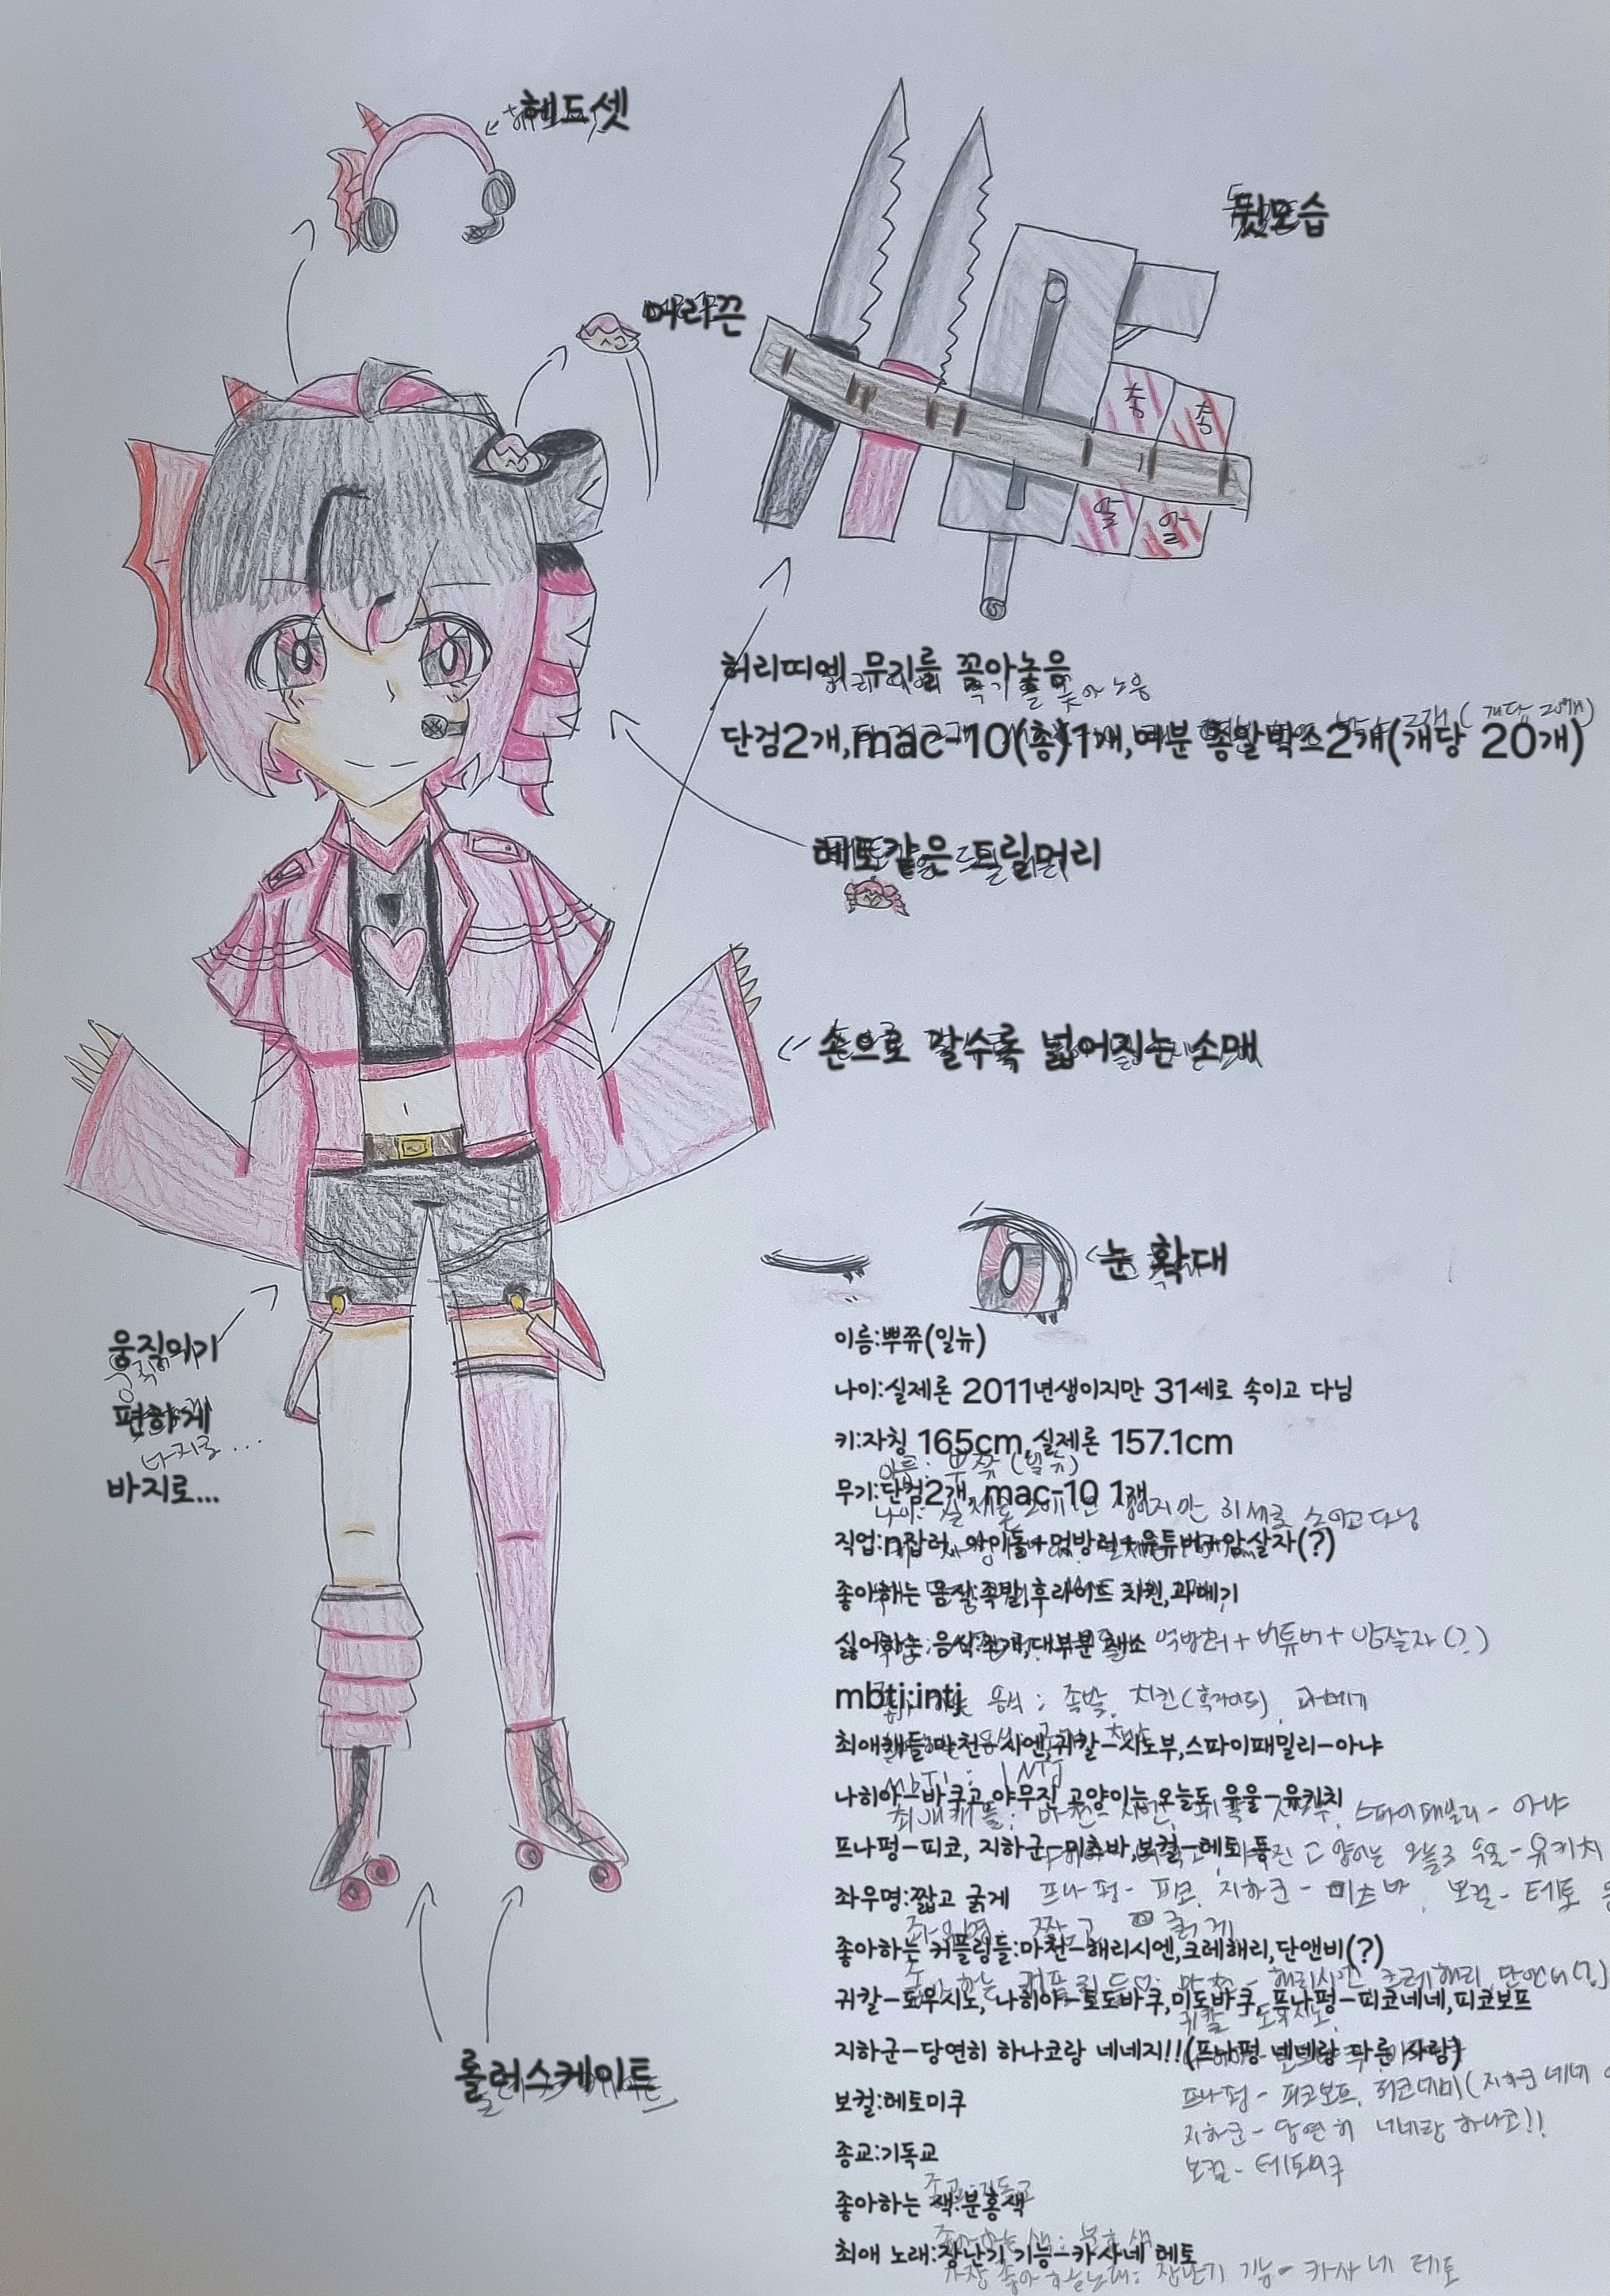 헤드셋
머리끈
뒷모습
총 총
알 알
허리띠에 무기를 꽂아놓음
단검2개,mac-10(총)1개,여분 총알박스2개(개당 20개)
테토같은 드릴머리
손으로 갈수록 넓어지는 소매
눈 확대
움직이기
편하게
바지로...
롤러스케이트
이름:뿌쮸(일뉴)
나이:실제론 2011년생이지만 31세로 속이고 다님
키:자칭 165cm,실제론 157.1cm
무기:단검2개, mac-10 1개
직업:n잡러, 아이돌+먹방러+유튜버+암살자(?)
좋아하는 음식:족발,후라이드 치킨,과메기
싫어하는 음식:조개,대부분 채소
mbti:intj
최애캐들:마천-시엔,귀칼-시노부,스파이패밀리-아냐
나히아-바쿠고,야무진 고양이는 오늘도 우울-유키치
프나펑-피코, 지하군-미츠바,보컬-테토 등
좌우명:짧고 굵게
좋아하는 커플링들:마천-해리시엔,크레해리,단앤비(?)
귀칼-토무시노, 나히아-토도바쿠,미도바쿠, 프나펑-피코네네,피코보프
지하군-당연히 하나코랑 네네지!!(프나펑 네네랑 다른 사람)
보컬:테토미쿠
종교:기독교
좋아하는 색:분홍색
최애 노래:장난기 기능-카사네 테토